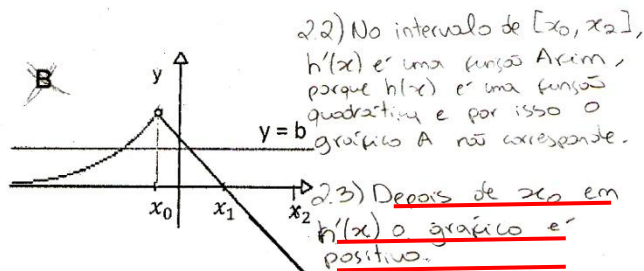 B
y
y = b
x₀
x₁
x₂
2.2) No intervalo de [x₀, x₂],
h'(x) é uma função Afim,
porque h(x) é uma função
quadrática e por isso o
gráfico A não corresponde.
2.3) Depois de x₀ em
h'(x) o gráfico é
positivo.